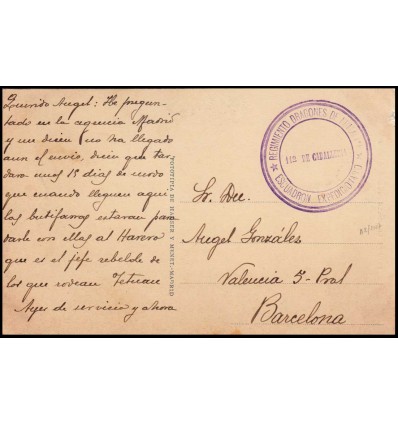 Querido Angel: He pregun-
tado en la agencia Madrid
y me dicen no ha llegado
aun el envio, dicen que tar
dara unos 15 dias de modo
que cuando lleguen aqui
las butifarras estaran para
darle con ellas al Harero
que es el jefe rebelde de
los que rodean Tetuan
Ayer de servicio y ahora
FOTOTIPIA DE HAUSER Y MENET.-MADRID
REGIMIENTO DRAGONES DE
DE CABALLERIA
ESCUADRON EXPEDICIONARIO
Sr. Don
Angel Gonzáles
Valencia 5-Pral
Barcelona